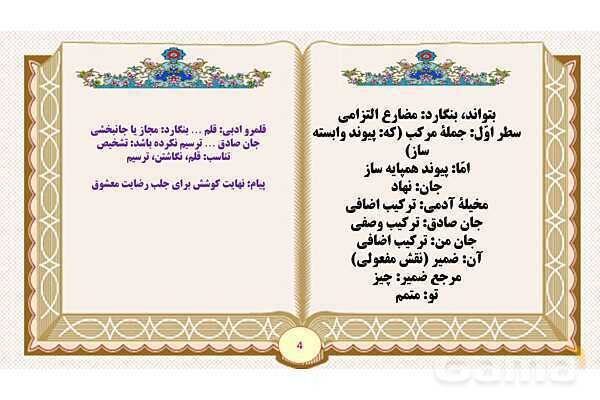 بتواند، بنگارد: مضارع التزامی
سطر اوّل: جملهٔ مرکب (که: پیوند وابسته
ساز)
امّا: پیوند همپایه ساز
جان: نهاد
مخیلهٔ آدمی: ترکیب اضافی
جان صادق: ترکیب وصفی
جان من: ترکیب اضافی
آن: ضمیر (نقش مفعولی)
مرجع ضمیر: چیز
تو: متمم
قلمرو ادبی: قلم ... بنگارد: مجاز یا جانبخشی
جان صادق ... ترسیم نکرده باشد: تشخیص
تناسب: قلم، نگاشتن، ترسیم
پیام: نهایت کوشش برای جلب رضایت معشوق
4
gama